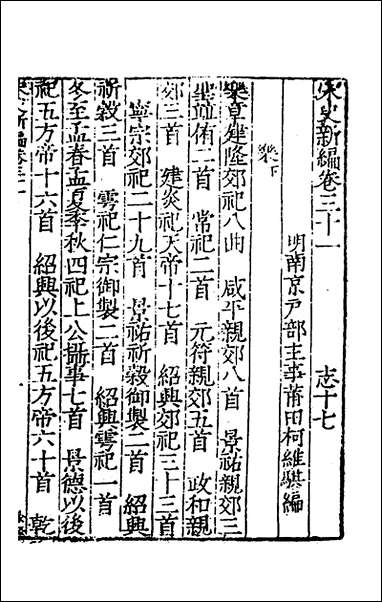 宋史新編卷三十一 志十七
明南京戶部主事莆田柯維騏編
樂下
樂章建隆郊祀八曲 咸平親郊八首 景祐親郊三
聖並侑二首 常祀二首 元符親郊五首 政和親
郊三首 建炎祀天帝十七首 紹興郊祀三十三首
寧宗郊祀二十九首 景祐祈穀御製二首 紹興
祈穀三首 雩祀仁宗御製二首 紹興雩祀一首
冬至孟春孟夏季秋四祀上公攝事七首 景德以後
祀五方帝十六首 紹興以後祀五方帝六十首 乾